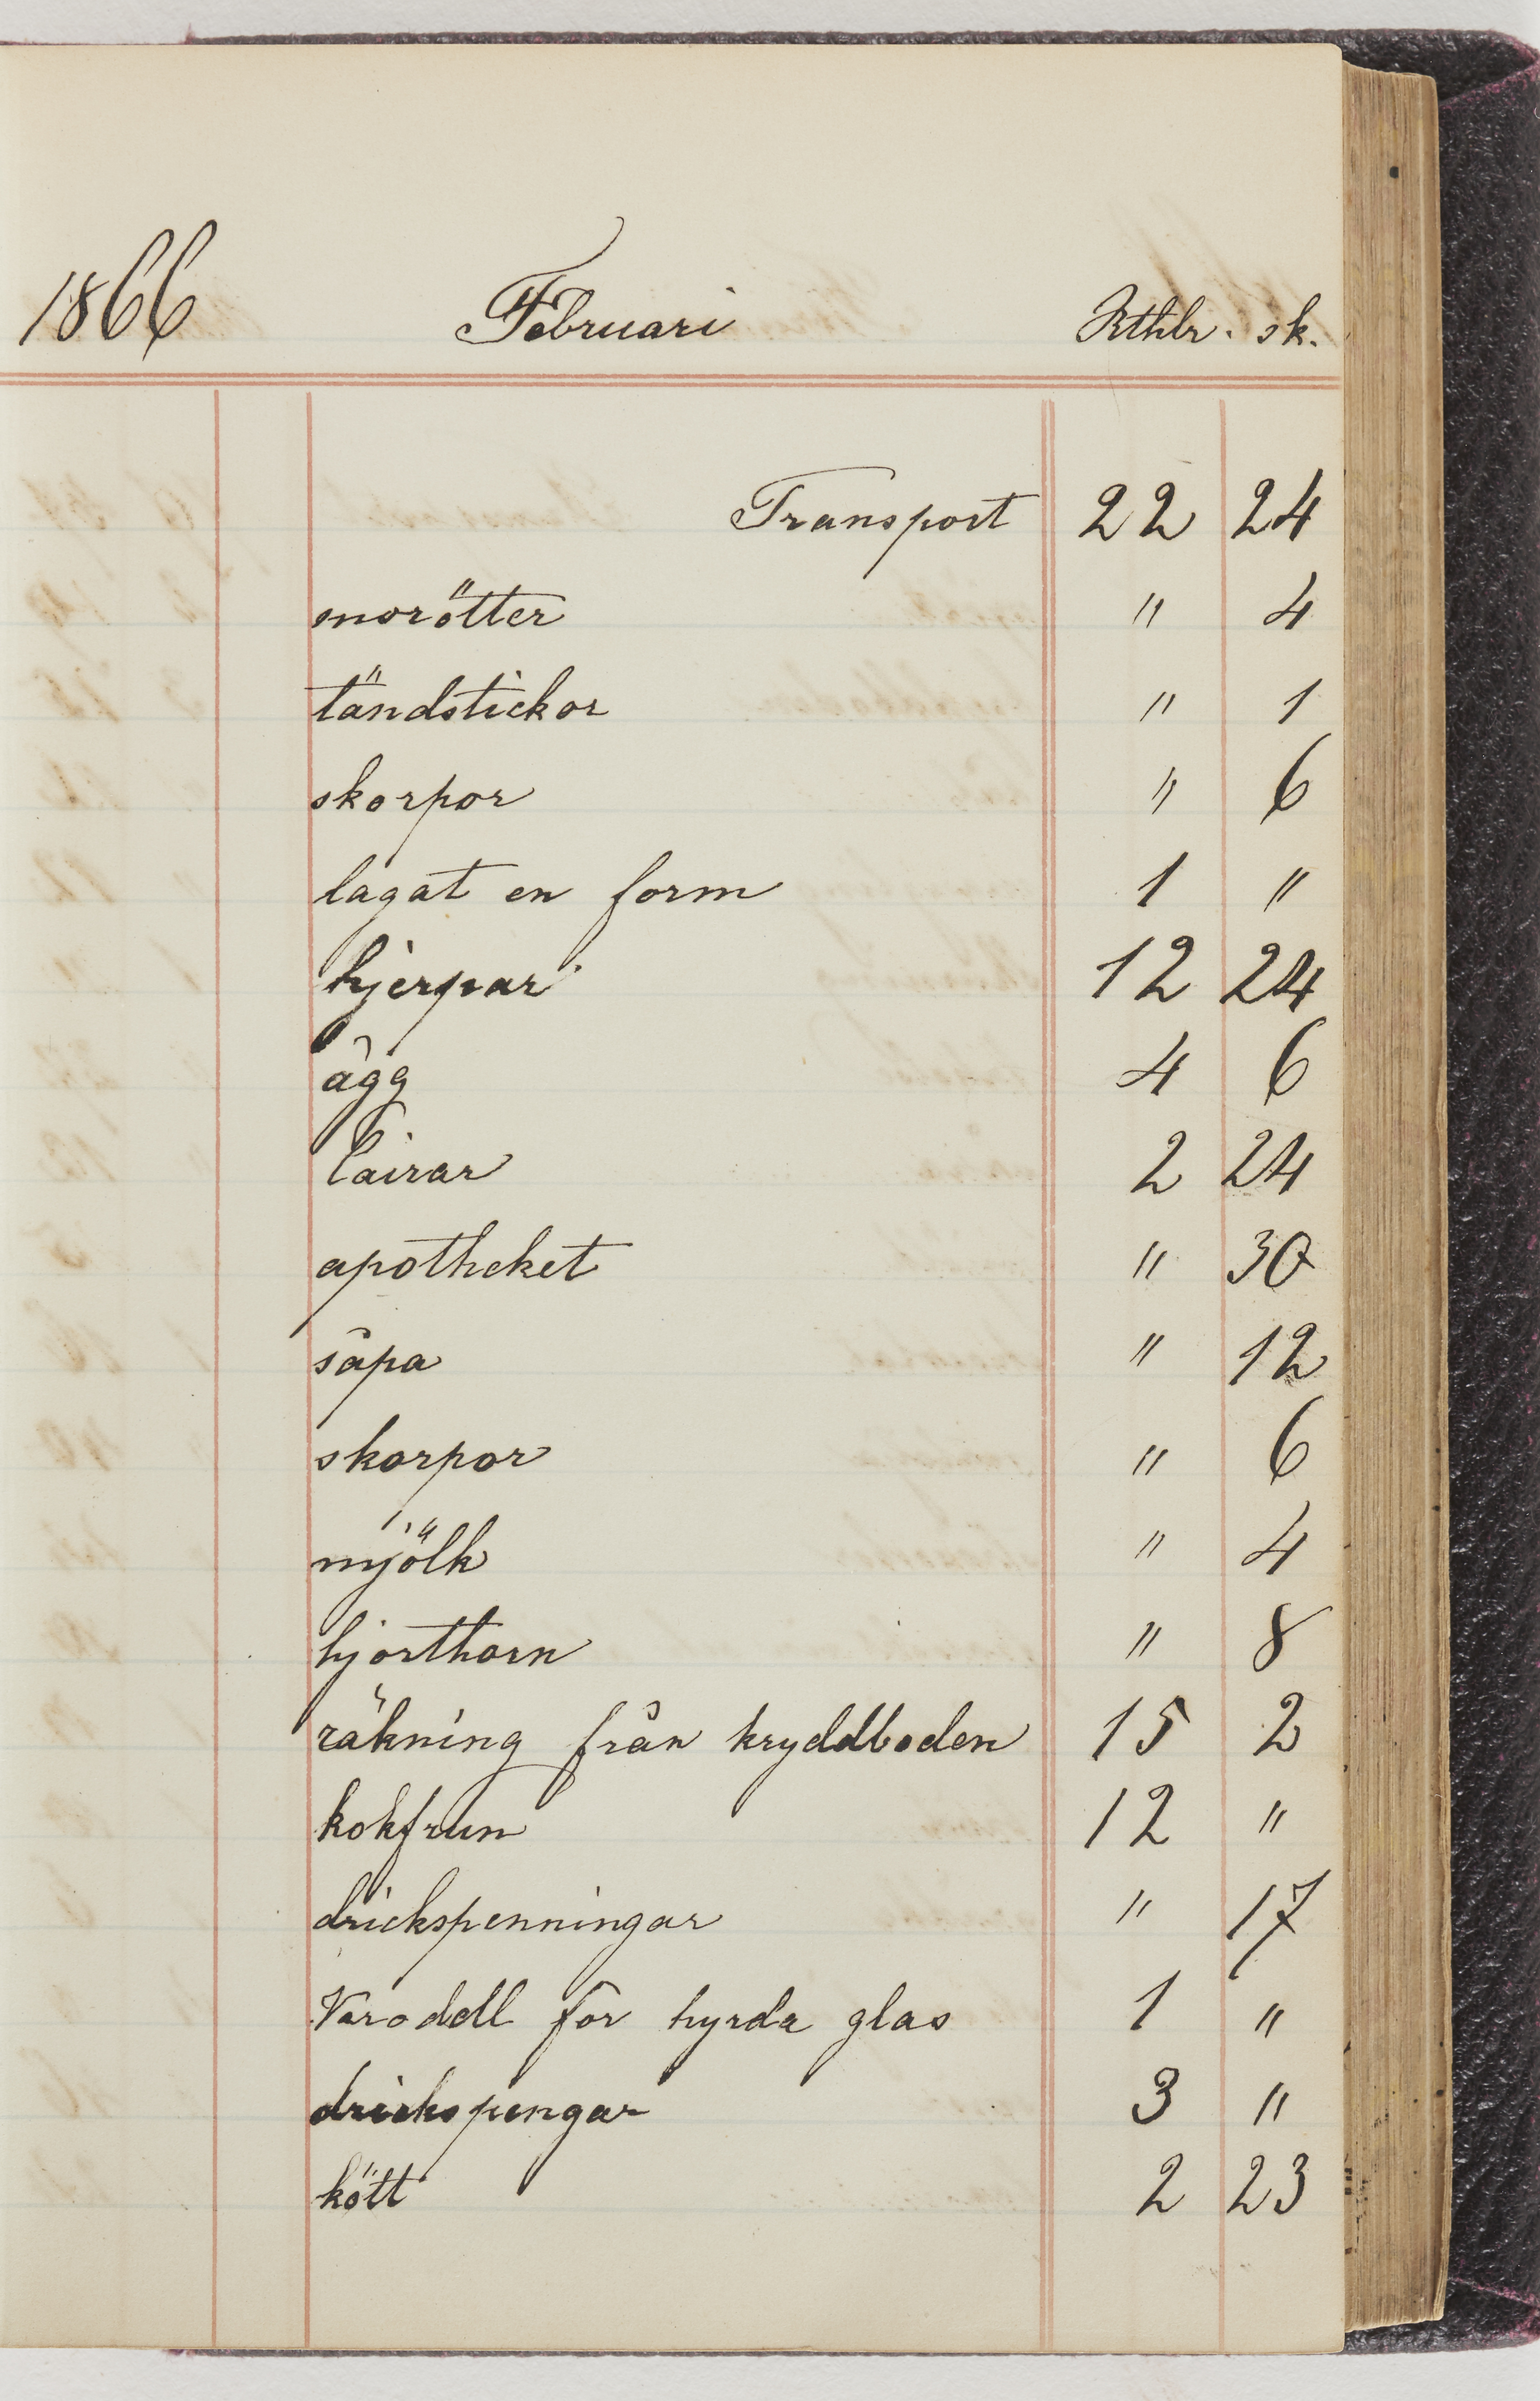 1866 Februari Rthlr. sk.
Transport 22 24
morötter " 4
tändstickor " 1
skorpor " 6
lagat en form 1 "
hjerpar 12 24
ägg 4 6
2 24
apotheket " 30
såpa " 12
skorpor " 6
mjölk " 4
hjorthorn " 8
räkning från kryddboden 15 2
kokfrun 12 "
drickspenningar " 17
för hyrda glas 1 "
drickspengar 3 "
kött 2 23